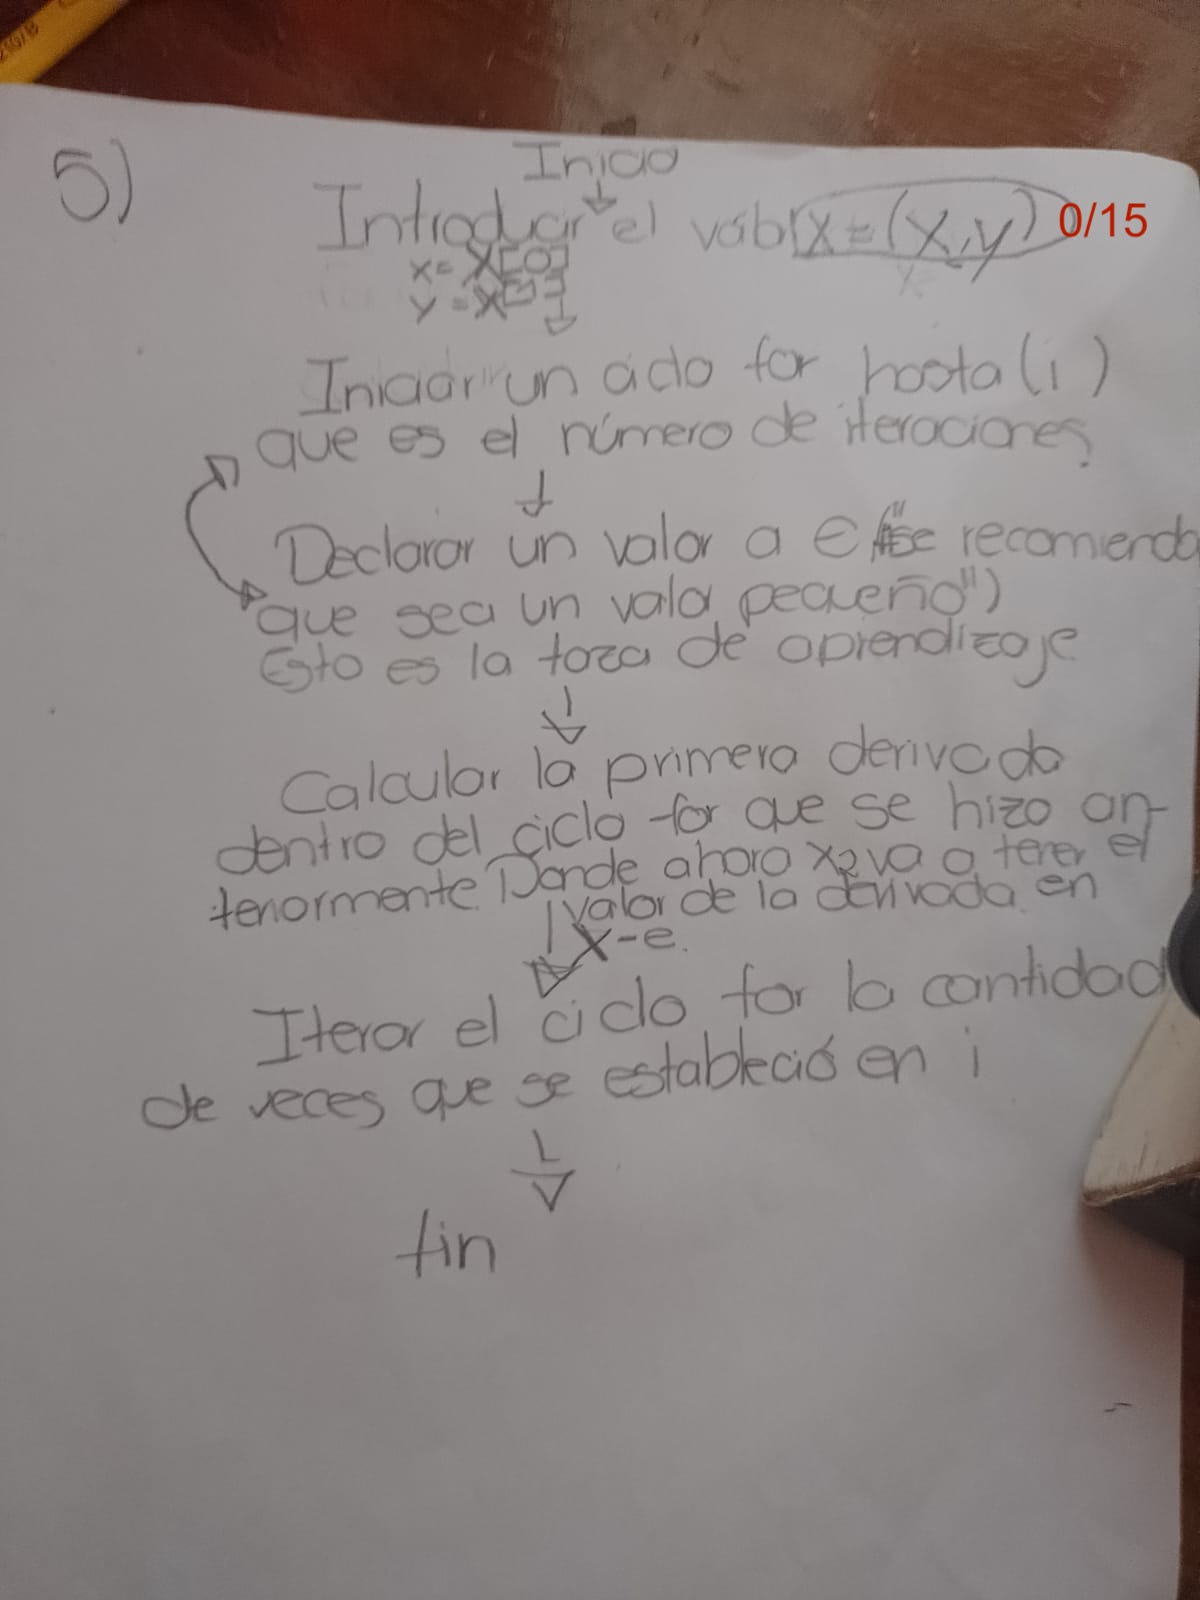 5)
Inicio
Introducir el val x = (x,y) 0/15
x = X[0]
y = X[1]
Iniciar un ciclo for hasta (i)
que es el número de iteraciones
Declarar un valor a ∈ ("se recomienda
que sea un valor pequeño")
Esto es la taza de aprendizaje
Calcular la primera derivada
dentro del ciclo for que se hizo an-
teriormente. Donde ahora x2 va a tener el
valor de la derivada en
x-e.
Iterar el ciclo for la cantidad
de veces que se estableció en i
fin